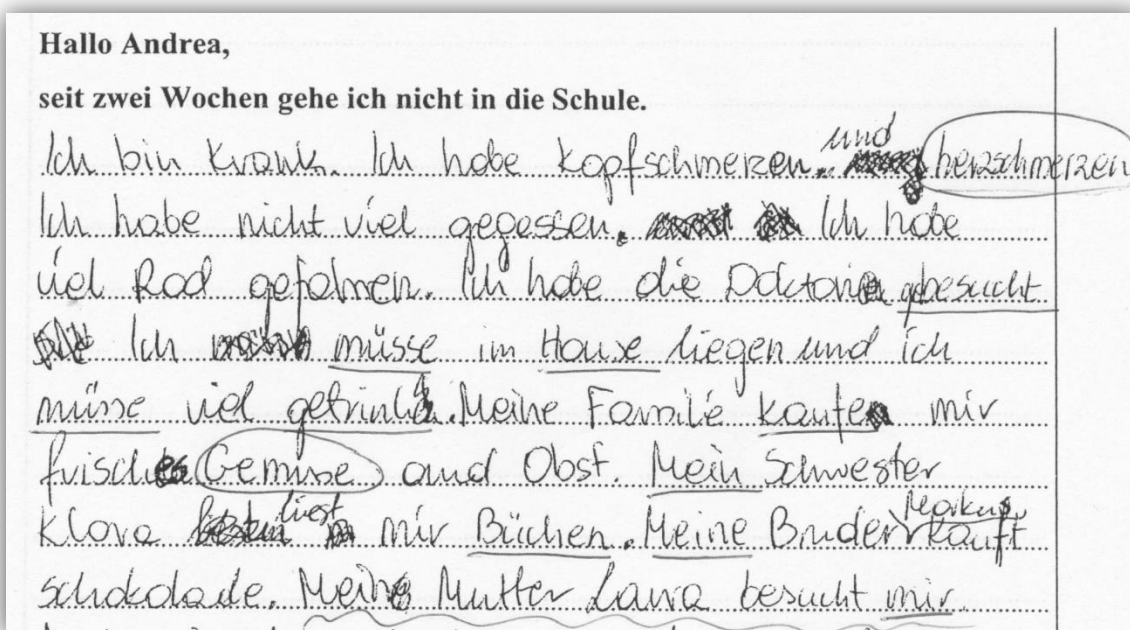 Hallo Andrea,
seit zwei Wochen gehe ich nicht in die Schule.
Ich bin Krank. Ich habe Kopfschmerzen. und herzschmerzen
Ich habe nicht viel gegessen. Ich habe
viel Rad gefahren. Ich habe die Doctorin gebesucht
Ich müsse im Hause liegen und ich
müsse viel Meine Familie kaufe mir
frisches Gemüse und Obst. Mein Schwester
Klara liest mir Büchen. Meine Bruder Markus kauft
schokolade. Meine Mutter Laura besucht mir.